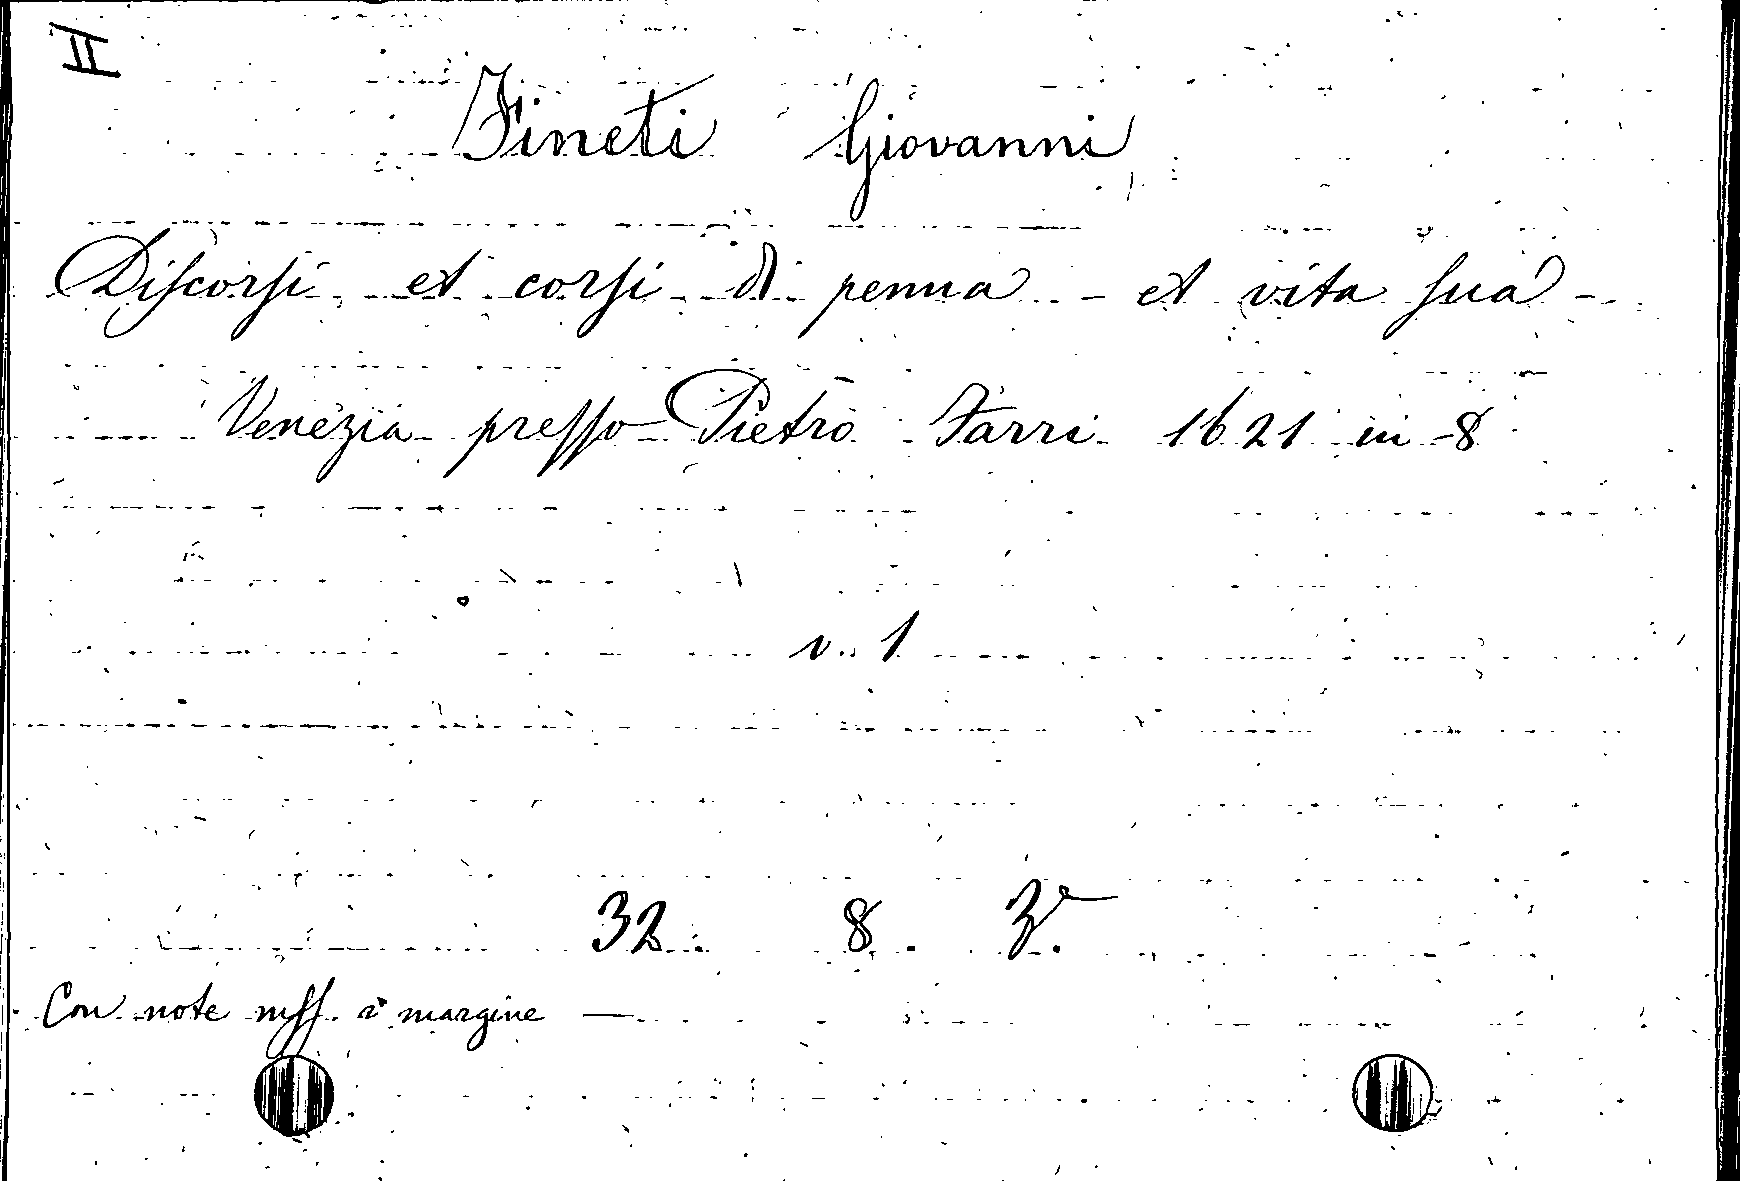 II
Fineti Giovanni
Discorsi et corsi di penna - et vita sua -
Venezia presso Pietro Farri 1621 in 8
v. 1
32. 8. 3º.
Con note mss. a margine —